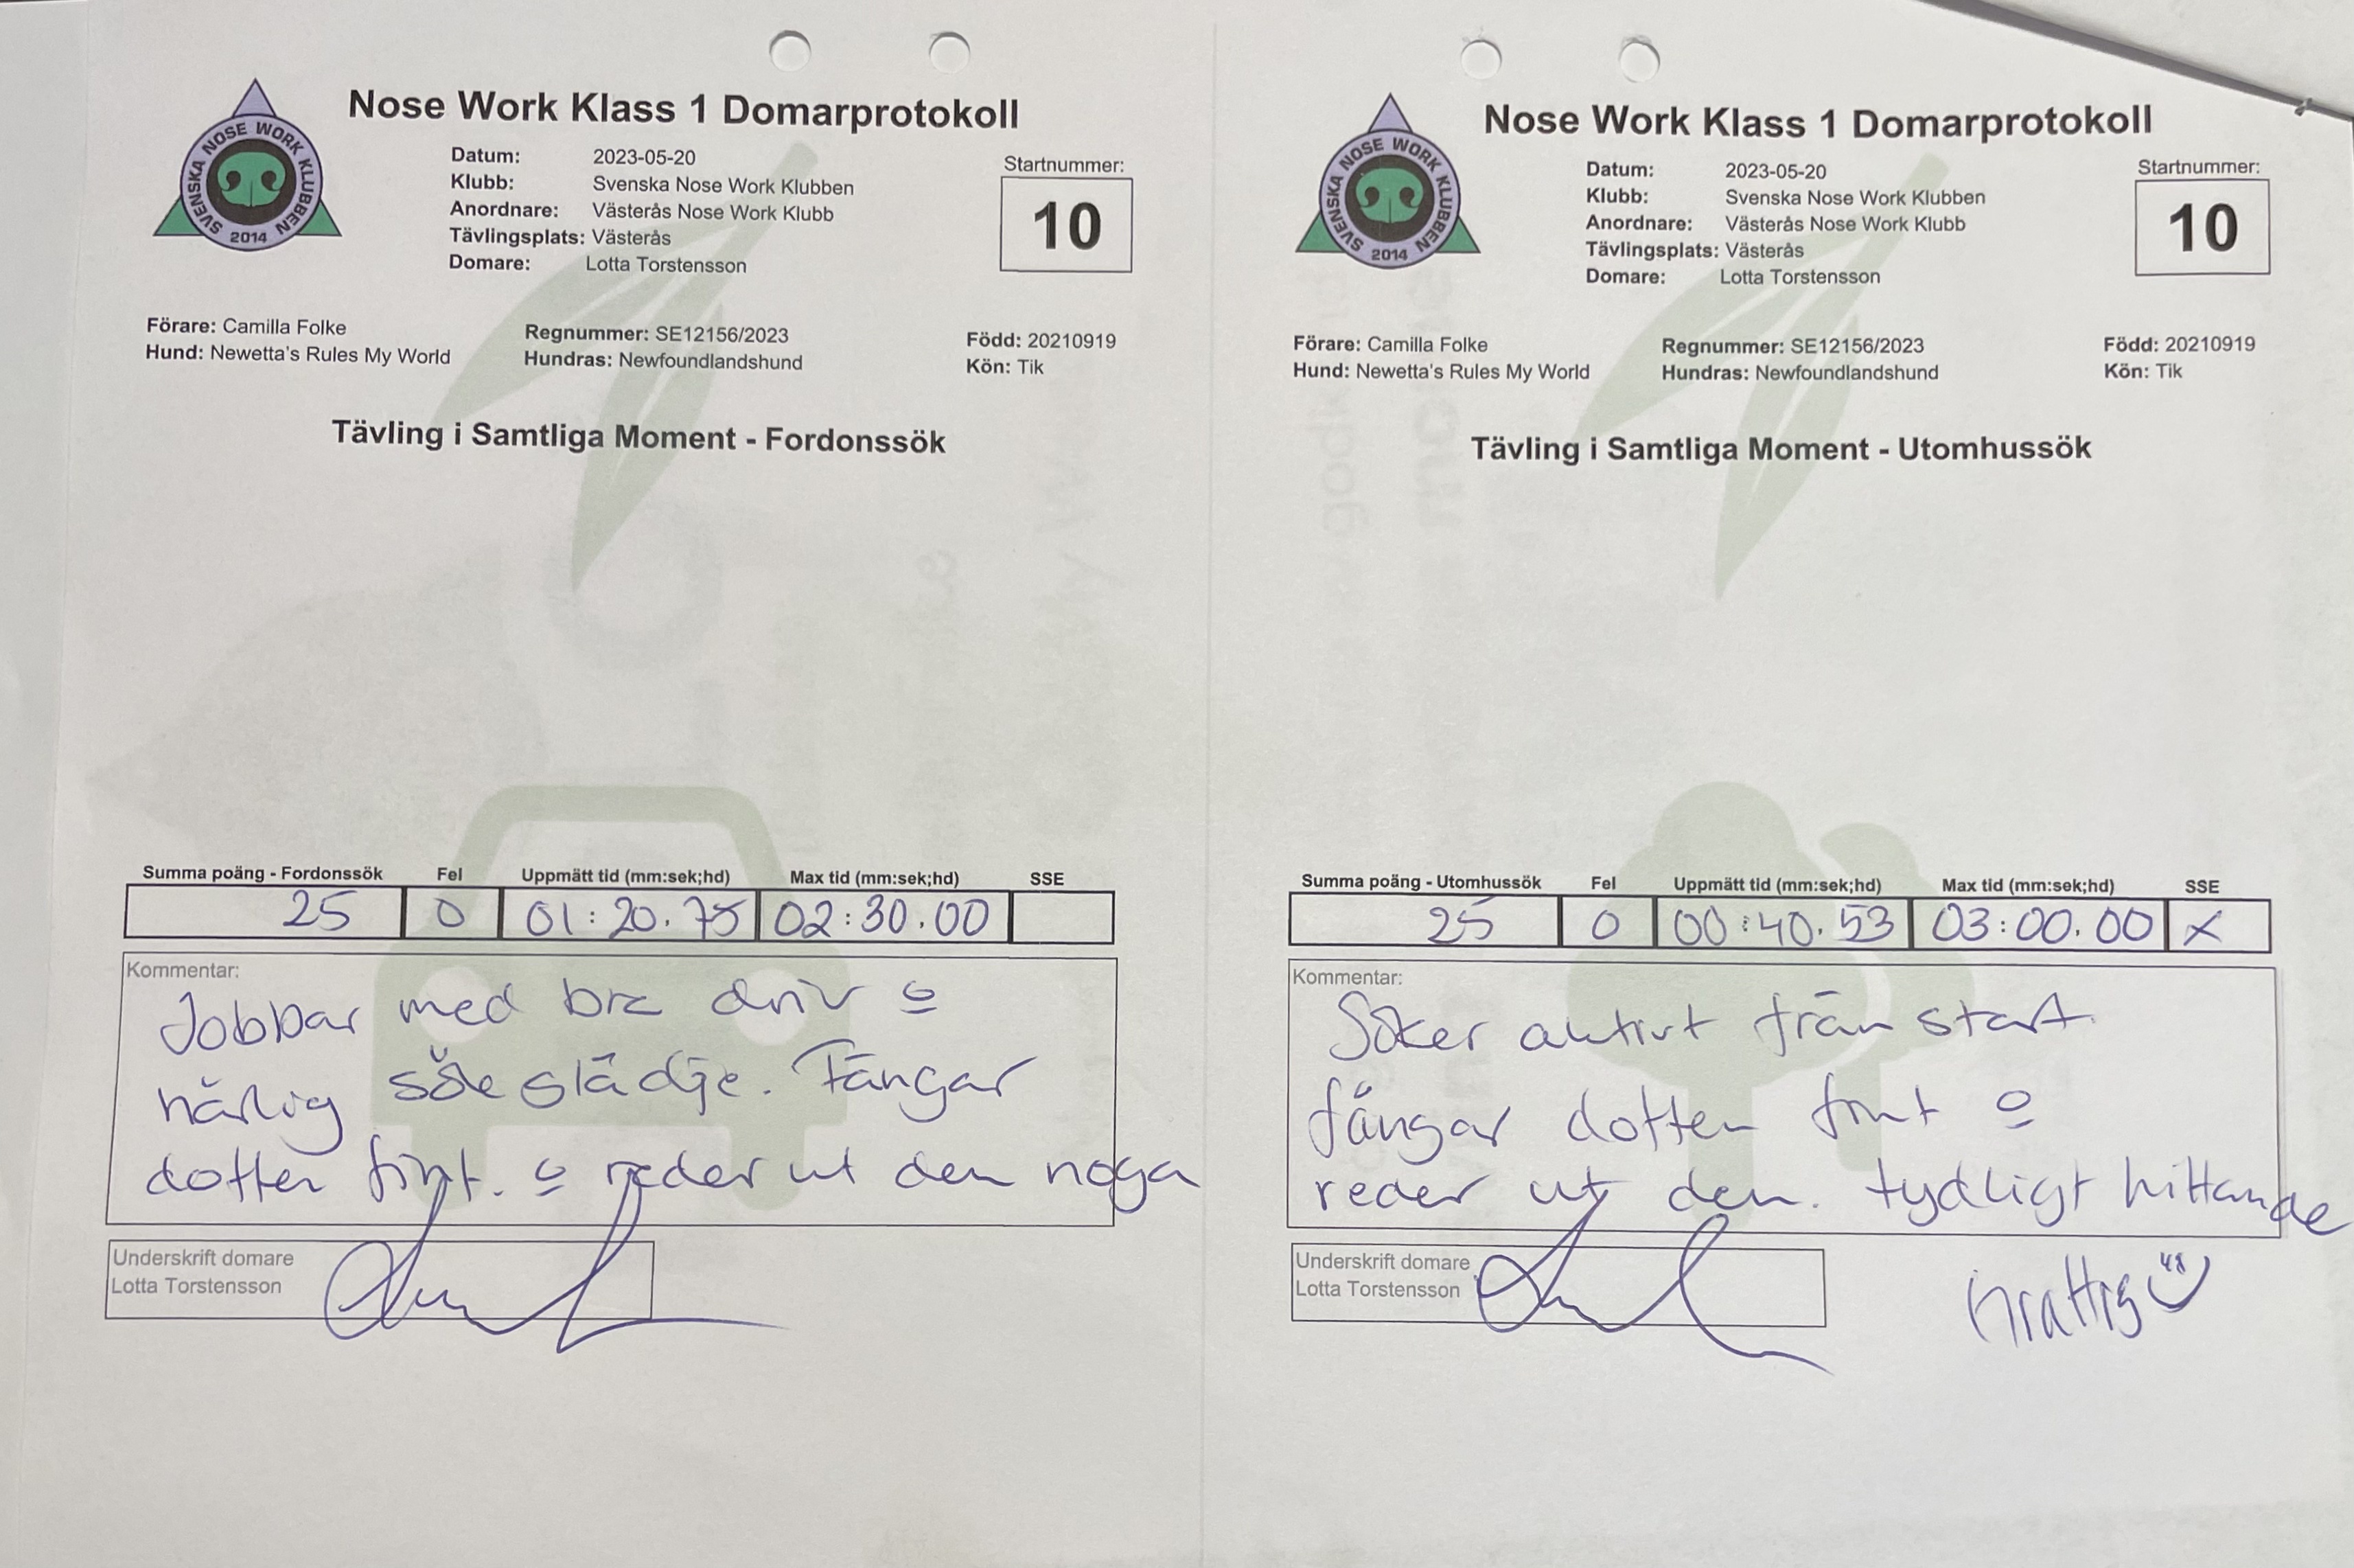 SVENSKA NOSE WORK KLUBBEN
2014
Nose Work Klass 1 Domarprotokoll
Datum: 2023-05-20
Klubb: Svenska Nose Work Klubben
Anordnare: Västerås Nose Work Klubb
Tävlingsplats: Västerås
Domare: Lotta Torstensson
Startnummer:
10
Förare: Camilla Folke
Hund: Newetta's Rules My World
Regnummer: SE12156/2023
Hundras: Newfoundlandshund
Född: 20210919
Kön: Tik
Tävling i Samtliga Moment - Fordonssök
Summa poäng - Fordonssök Fel Uppmätt tid (mm:sek;hd) Max tid (mm:sek;hd) SSE
25 0 01:20.75 02:30.00
Kommentar:
Jobbar med bra driv o
härlig sökglädje. Fångar
doften fint. o reder ut den noga
Underskrift domare
Lotta Torstensson
SVENSKA NOSE WORK KLUBBEN
2014
Nose Work Klass 1 Domarprotokoll
Datum: 2023-05-20
Klubb: Svenska Nose Work Klubben
Anordnare: Västerås Nose Work Klubb
Tävlingsplats: Västerås
Domare: Lotta Torstensson
Startnummer:
10
Förare: Camilla Folke
Hund: Newetta's Rules My World
Regnummer: SE12156/2023
Hundras: Newfoundlandshund
Född: 20210919
Kön: Tik
Tävling i Samtliga Moment - Utomhussök
Summa poäng - Utomhussök Fel Uppmätt tid (mm:sek;hd) Max tid (mm:sek;hd) SSE
25 0 00:40.53 03:00.00 X
Kommentar:
Söker aktivt från start
fångar doften fint o
reder ut den. tydligt hittande
Underskrift domare
Lotta Torstensson
Grattis